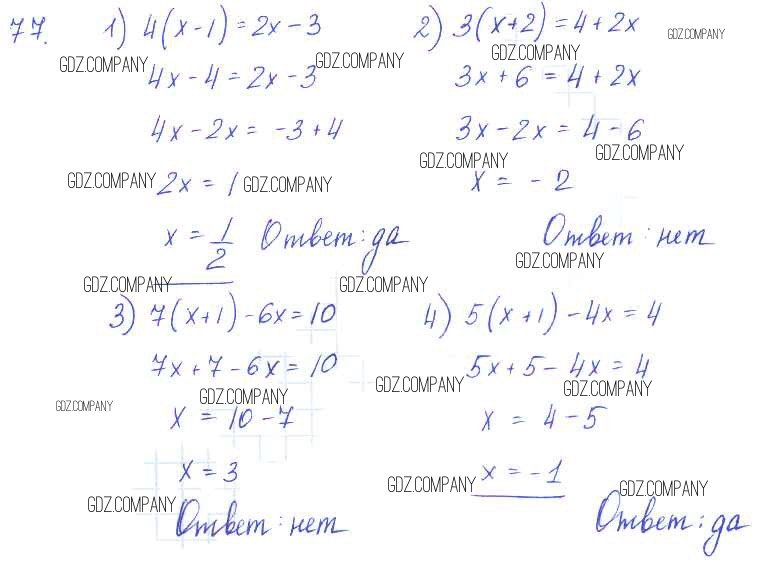 77. 1) 4(x-1)=2x-3
GDZ.COMPANY 4x-4=2x-3 GDZ.COMPANY
4x-2x= -3+4
GDZ.COMPANY 2x = 1 GDZ.COMPANY
x = 1/2 Ответ: да
2) 3(x+2)=4+2x GDZ.COMPANY
GDZ.COMPANY
3x+6=4+2x
3x-2x=4-6
GDZ.COMPANY GDZ.COMPANY
x = -2
Ответ: нет
GDZ.COMPANY
GDZ.COMPANY GDZ.COMPANY
3) 7(x+1)-6x=10
7x+7-6x=10
GDZ.COMPANY
GDZ.COMPANY x = 10-7
x = 3
GDZ.COMPANY
Ответ: нет
4) 5(x+1)-4x=4
5x+5-4x=4
GDZ.COMPANY GDZ.COMPANY
x = 4-5
GDZ.COMPANY x=-1 GDZ.COMPANY
Ответ: да